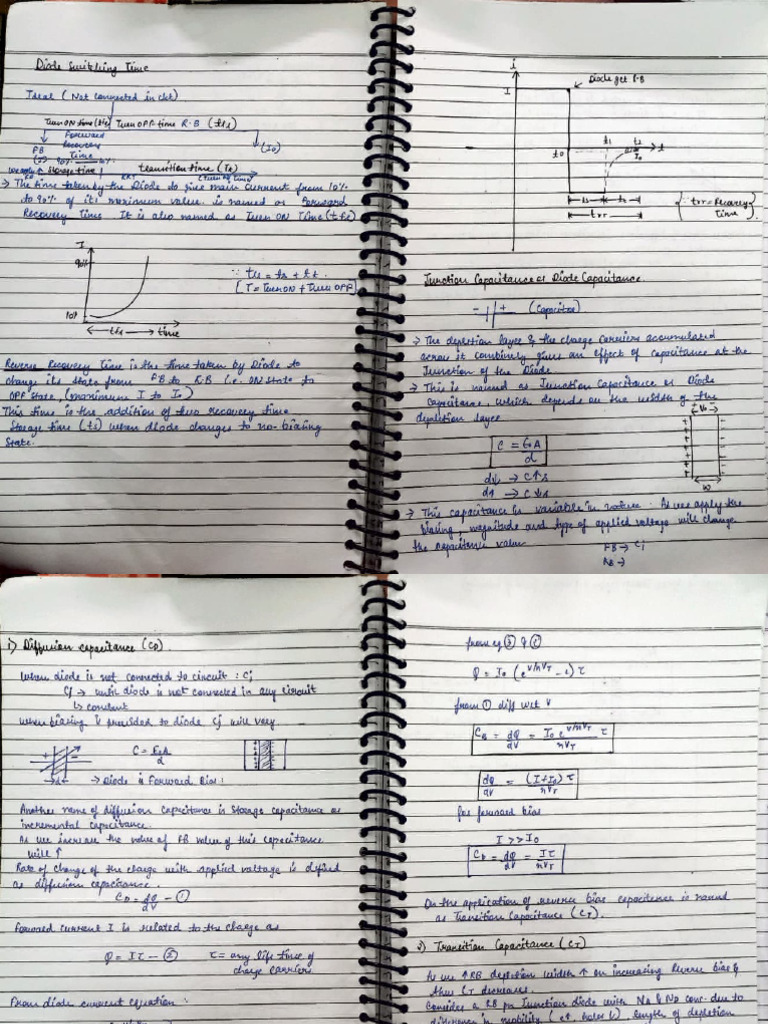 Diode Switching Time
Ideal (Not connected in ckt)
Turn ON time (tfs) Turn OFF time R.B (trs)
Forward
Recovery
Time
FB
(Io)
storage time transition time (Tt)
→ The time taken by the Diode to give main current from 10%
to 90% of its maximum value. is named as Forward
Recovery Time. It is also named as Turn ON Time (tfs)
I
90%
10%
tfs → time
∵ trs = ts + tt.
[T = Turn ON + Turn OFF]
Reverse Recovery Time is the time taken by Diode to
change its state from FB to R.B i.e. ON state to
OFF state, (maximum I to Io)
This time is the addition of two recovery time
Storage time (ts) when diode changes to no-biasing
State.
i
I
Diode get R.B
to
t1
t2
t
Io
ts
trr
{ trr = Recovery
Time }
Junction Capacitance or Diode Capacitance
- | | + (Capacitor)
→ The depletion layer & the charge carriers accumulated
across it combinely gives an effect of capacitance at the
Junction of the Diode
→ This is named as Junction Capacitance or Diode
capacitance, which depends on the width of the
depletion layer
C = ε0A
d
d↓ → C↑s
d↑ → C↓s
W
→ This capacitance is variable in nature. As we apply the
biasing, magnitude and type of applied voltage will change
the capacitance value
FB → Cj
RB →
1) Diffusion capacitance (CD).
When diode is not connected to circuit : Cj
Cj → until diode is not connected in any circuit
↳ constant
When biasing is provided to diode Cj will vary
C = ε0A
d
d
→ Diode is Forward Bias.
Another name of diffusion capacitance is storage capacitance or
incremental capacitance.
As we increase the value of FB value of this capacitance
will ↑
Rate of change of the charge with applied voltage is defined
as diffusion capacitance.
CD = dQ/dV — ①
Forward current I is related to the charge as
Q = Iτ — ② τ = avg life time of
charge carriers
From diode current equation :
from eq ③ & ②
Q = Io (e^V/ηVT - 1) τ
from ① diff wrt V
CD = dQ/dV = Io e^V/ηVT τ / ηVT
dQ/dV = (I+Io) τ / ηVT
for forward bias
I >> Io
CD = dQ/dV = Iτ / ηVT
On the application of reverse bias capacitance is named
as Transition Capacitance (CT).
2) Transition Capacitance (CT)
As we ↑ RB depletion width ↑ on increasing Reverse bias &
thus CT decreases.
Consider a RB pn Junction diode with NA & ND conc. due to
difference in mobility ( e↑, holes ↓) length of depletion